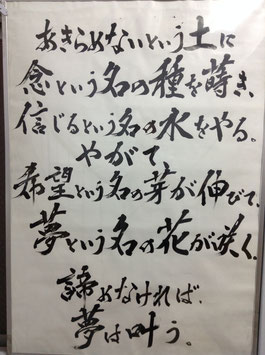 あきらめないという土に
念という名の種を蒔き、
信じるという名の水をやる。
やがて
希望という名の芽が伸びて、
夢という名の花が咲く。
諦めなければ、
夢は叶う。